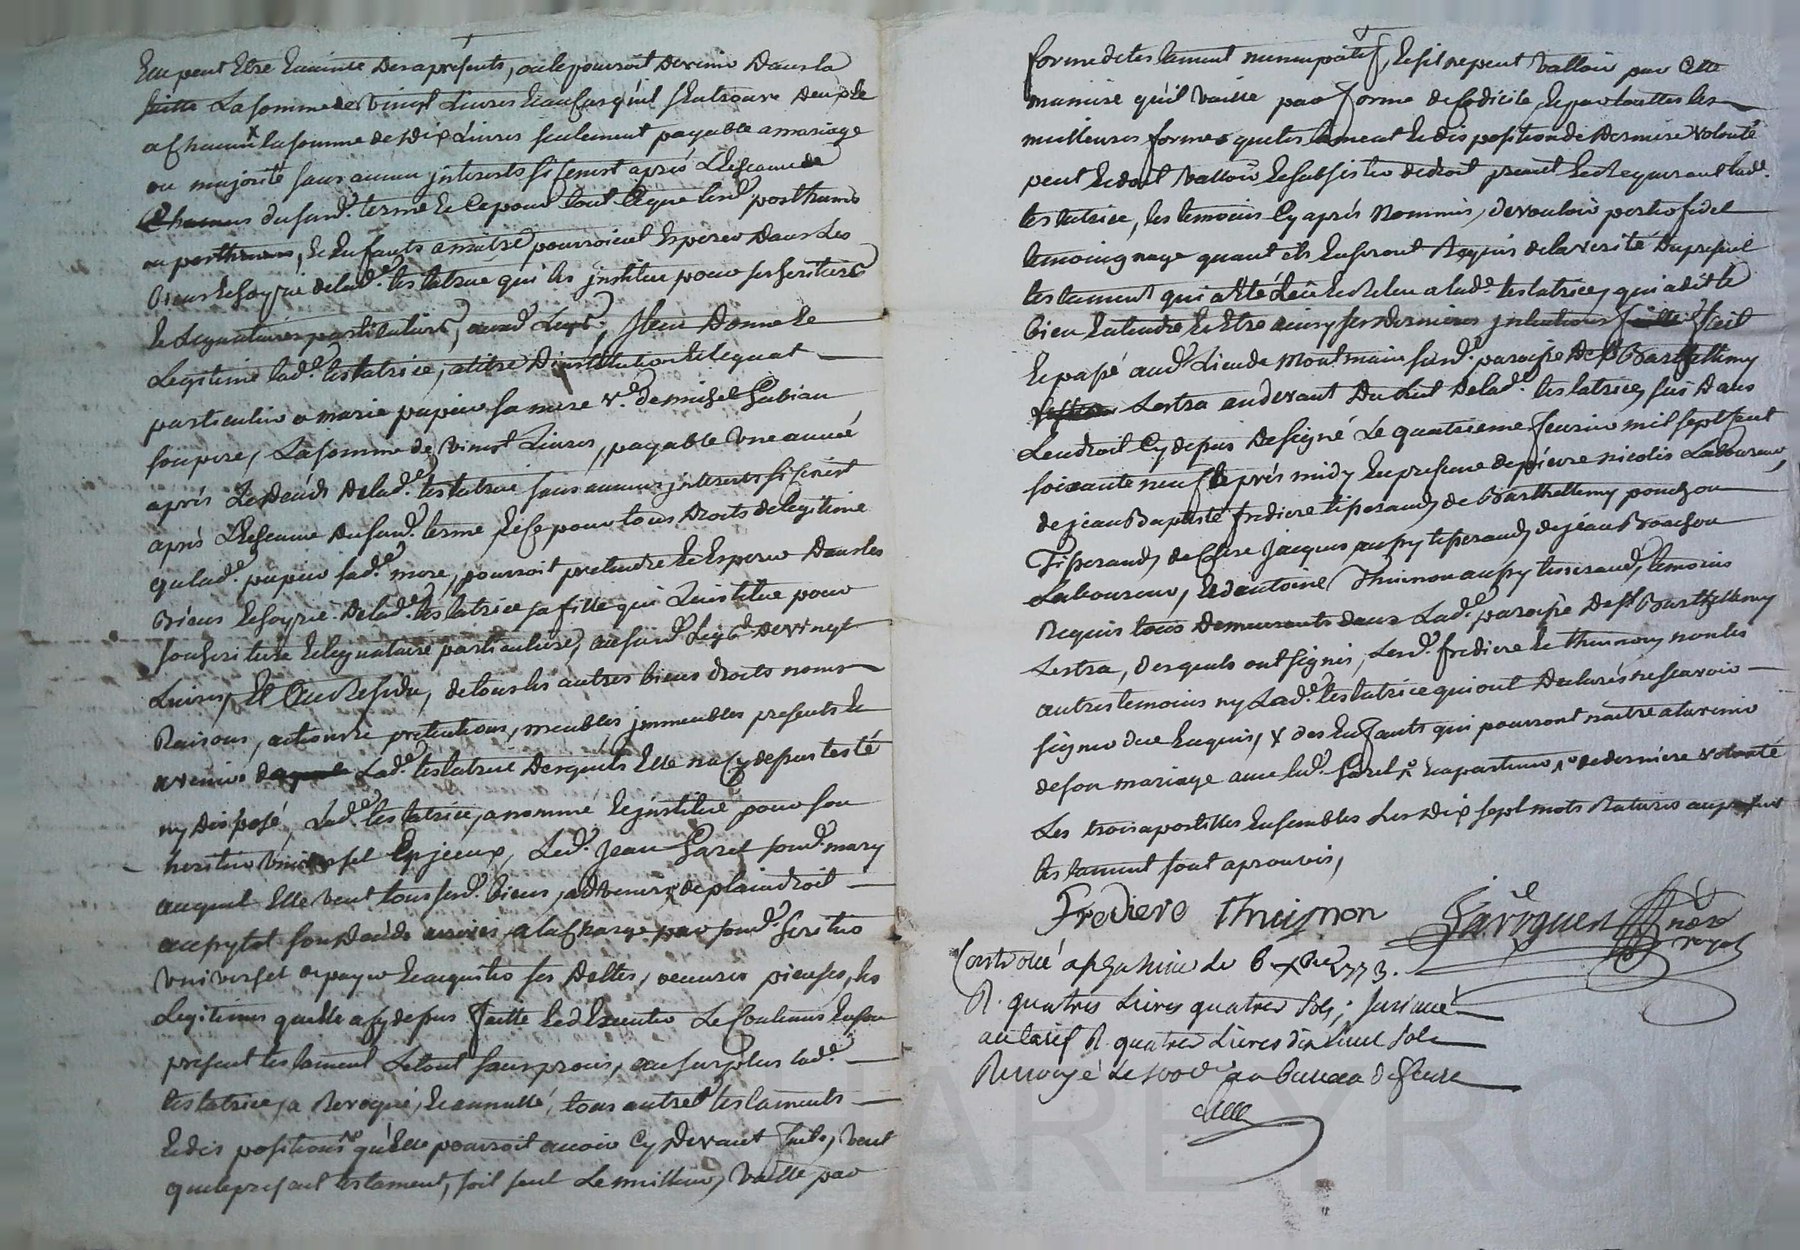 Elle peut Etre Enceinte Desaprésents, ou le pourroit Devenir Dans la
suitte La somme de vingt Livres Encas quil sentrouve Deux Ee
a Chacun x la somme de Dix Livres seulement payable a mariage
ou majorité sans aucun jnterests si senest aprés L'Esceance
Chacuns dususd.t terme Ee Ce pour tout Ceque lesd. posthume
ou posthumes, Ee Enfants a naitre pourroient Esperer Dans Les
biens Ee hoyrie delad.e testatrice qui les jnstitue pour ses heritiers
Ee Legataires particuliers, aud. Legt; Jtem Donne Ee
Legitime lad.e testatrice, a titre D'institution Ee legat
particulier a marie papier sa mere v.e de michel Gabian
son pere, La somme de vingt Livres, payable Une année
aprés Le Decés Delad.e testatrice sans aucuns jnterests si senest
aprés L'Esceance Dususd. terme, Ee Ce pour tous Droits de legitime
que lad.e papier sad.e mere, pourroit pretendre Ee Esperer Dans les
Biens Ee hoyrie Delad.e testatrice sa fille qui L'institue pour
son heritiere Ee legataire particuliere, au susd. Legt. De vingt
Livres, Et Au Residu, de tous les autres biens droits noms
Raisons, actions Ee pretentions, meubles, jmmeubles presents Ee
avenir Lad.e testatrice Desquels Elle na Cy depus testé
ny Disposé, Lad.e testatrice, a nommé Ee jnstitué pour son
heritier Universel Led. Jean Garel sond. mary
auquel Elle veut tous sesd. biens, advenir de plain droit
aussytot son Decés arrivé, a la Charge par sond. heritier
Universel de payer Ee acquitter ses Dettes, oeuvres pieuses, les
Legitimes quelle a Cy depus faitte Ee d'Executer Le Contenus En son
present testament Le tout sans procés, au surplus lad.e
testatrice, a Revoqué, Ee annullé, tous autres testaments
Ee dis positions quelle pourroit avoir Cy Devant faits, veut
que le present testament, soit seul Le meilleur, Vaille par
forme de testament nuncupatif, Ee sil ne peut valloir par Cette
maniere qu'il vaille par forme de Codicile, Ee par touttes les
meilleures formes que testament Ee dis position de Derniere volonté
peut Ee doit valloir, Ee subsister de droit priant Ee Requerant lad.e
testatrice, les temoins Cy aprés Nommés, de vouloir porter fidel
temoingnage quant ils En seront Requis de la verité Du present
testament qui a Eté Lëu Ee Relëu a lad.e testatrice, qui a dit le
bien Entendre Ee Etre ainsy ses Dernieres jntentions fait
Ee passé aud. Lieu de Montmain susd. paroisse De St Barthellemy
Lestra audevant Du Lit Delad.e testatrice, sus Dans
L'endroit Cy depus Designé Le quatrieme fevrier mil sept sent
soixante neuf aprés midy En presence de pierre nicolas Laboureur,
de jean Baptiste frediere tisserand, de Barthellemy ponchon
Tisserand, de Claire Jacques aussy tisserand, de jean Brachon
Laboureur, Ee d'antoine Thuinon aussy tisserand, temoins
Requis tous Demeurants dans Lad.e paroisse De St Barthellemy
Lestra, Desquels ont signés, Lesd. frediere Ee thuinon, non les
autres temoins ny Lad.e testatrice qui ont Declarés ne scavoir
signer de ce Enquis, x des Enfants qui pourront naitre a lavenir
de son mariage avec led. Garel, x de derniere volonté
Les trois apostilles Ensembles Les Dix sept mots Raturés au present
testament sont aprouvés,
Frediere Thuinon
nore
royal
Controllé a le 6 1773.
R. quatres Livres quatres sols; jnsinué
au tarif R. quatres Livres dix sols
Renvoyé Le 100e au bureau de feurs